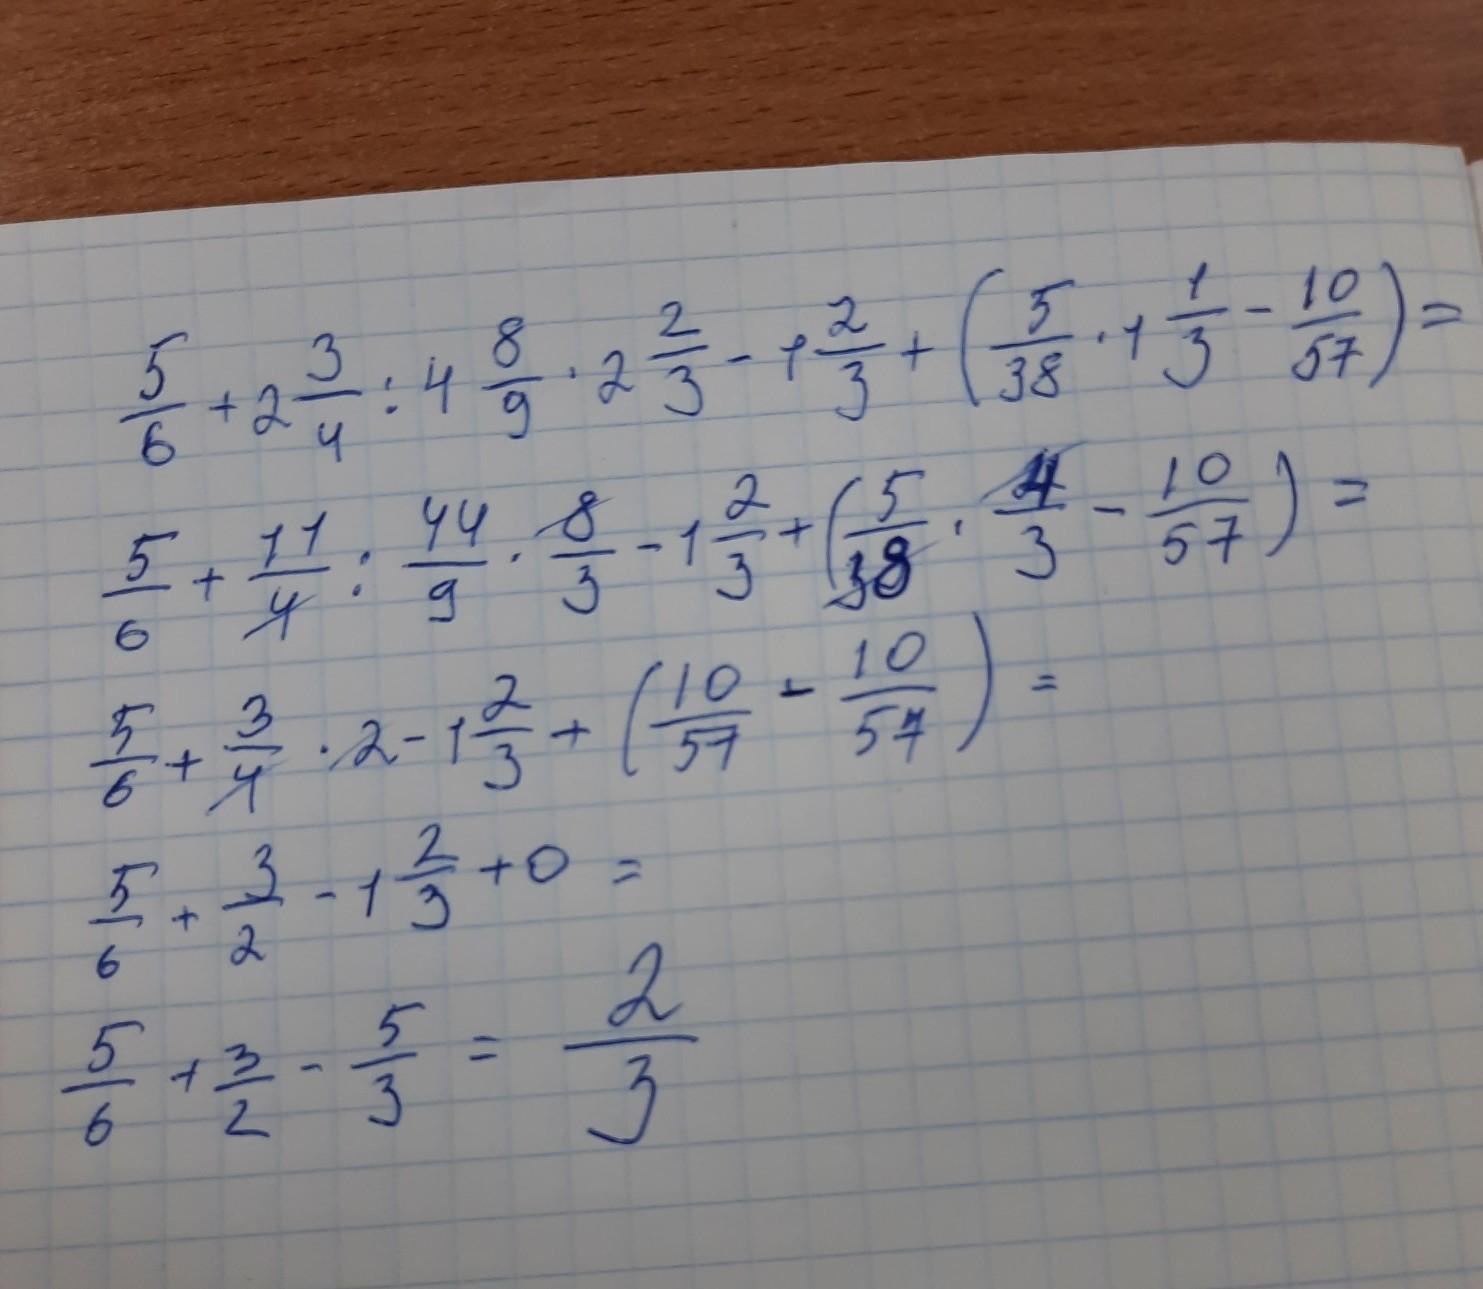 5/6 + 2 3/4 : 4 8/9 · 2 2/3 - 1 2/3 + (5/38 · 1 1/3 - 10/57) =
5/6 + 11/4 : 44/9 · 8/3 - 1 2/3 + (5/38 · 4/3 - 10/57) =
5/6 + 3/4 · 2 - 1 2/3 + (10/57 - 10/57) =
5/6 + 3/2 - 1 2/3 + 0 =
5/6 + 3/2 - 5/3 = 2/3